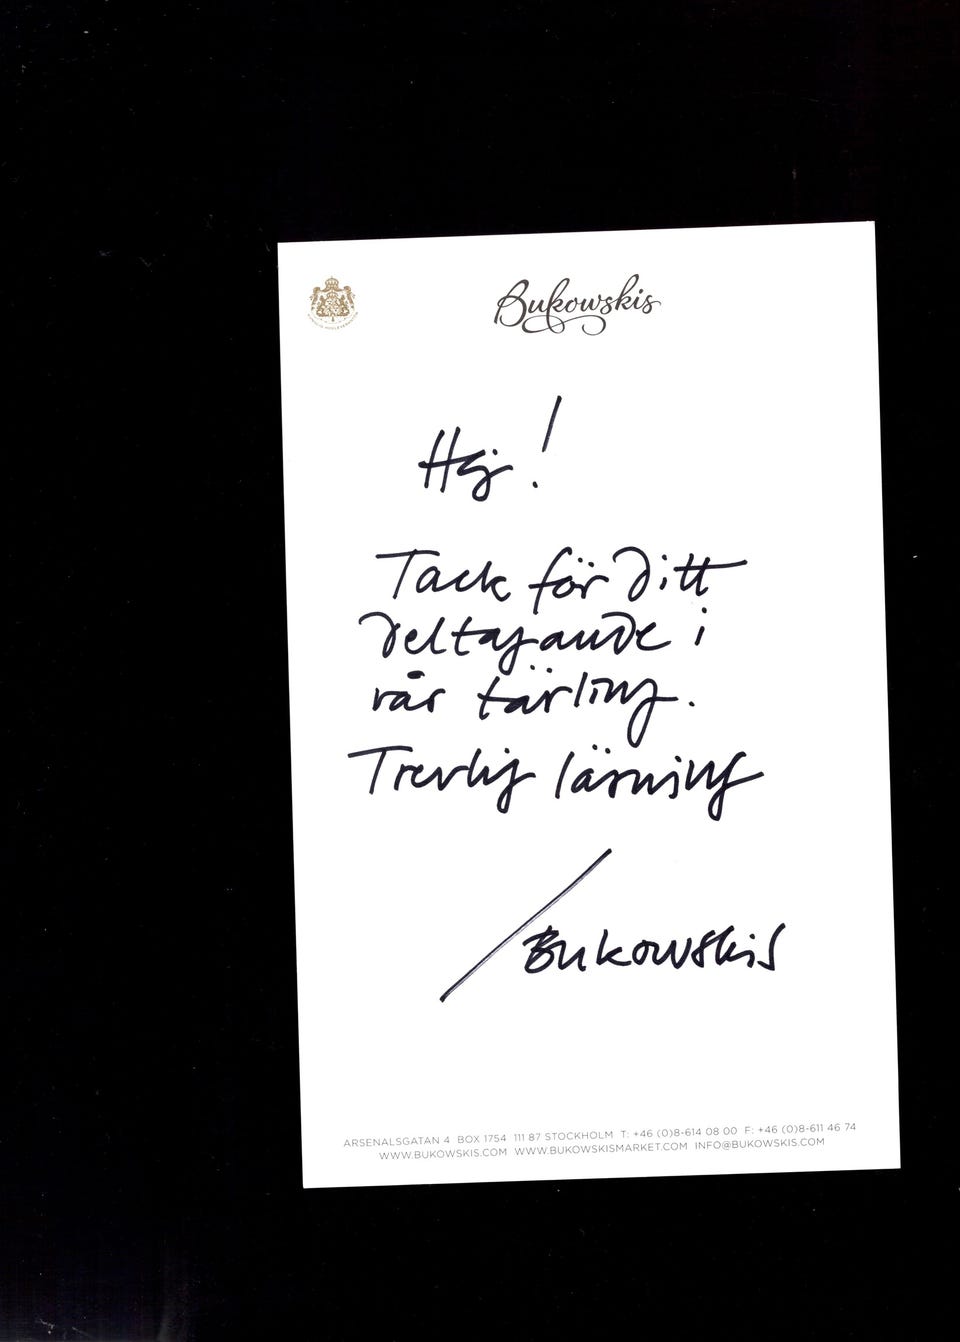 Bukowskis
Hej!
Tack för ditt
deltagande i
vår tävling.
Trevlig läsning
/Bukowskis
ARSENALSGATAN 4 BOX 1754 111 87 STOCKHOLM T: +46 (0)8-614 08 00 F: +46 (0)8-611 46 74
WWW.BUKOWSKIS.COM WWW.BUKOWSKISMARKET.COM INFO@BUKOWSKIS.COM